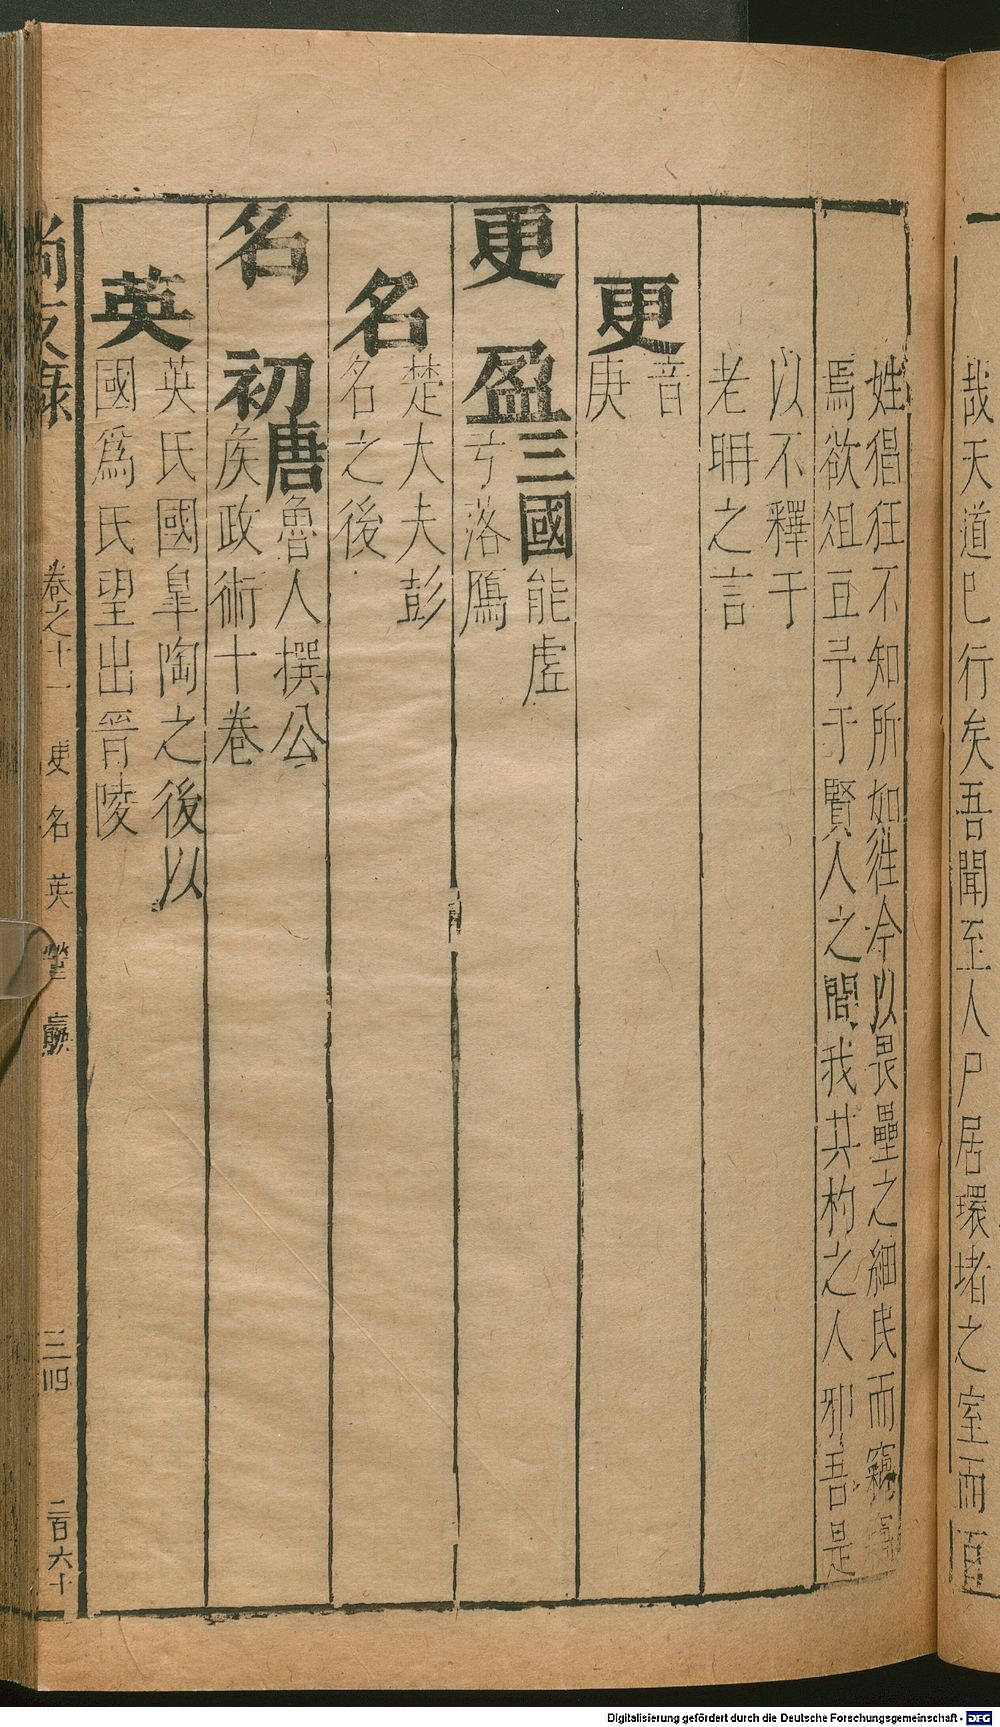 哉天道已行矣吾聞至人尸居環堵之室而百
姓猖狂不知所如徃今以畏壘之細民而竊竊
焉欲俎豆予于賢人之間我其杓之人邪吾是
以不釋于
老聃之言
更
音
庚
更盈
三國
能虛
弓落鴈
名
楚大夫彭
名之後
名初
唐
魯人撰公
矦政術十卷
英
英氏國皐陶之後以
國爲氏望出晉陵
尚友錄 卷之十一 更 名 英 瑩 嬴 三四 二百六十
Digitalisierung gefördert durch die Deutsche Forschungsgemeinschaft - DFG